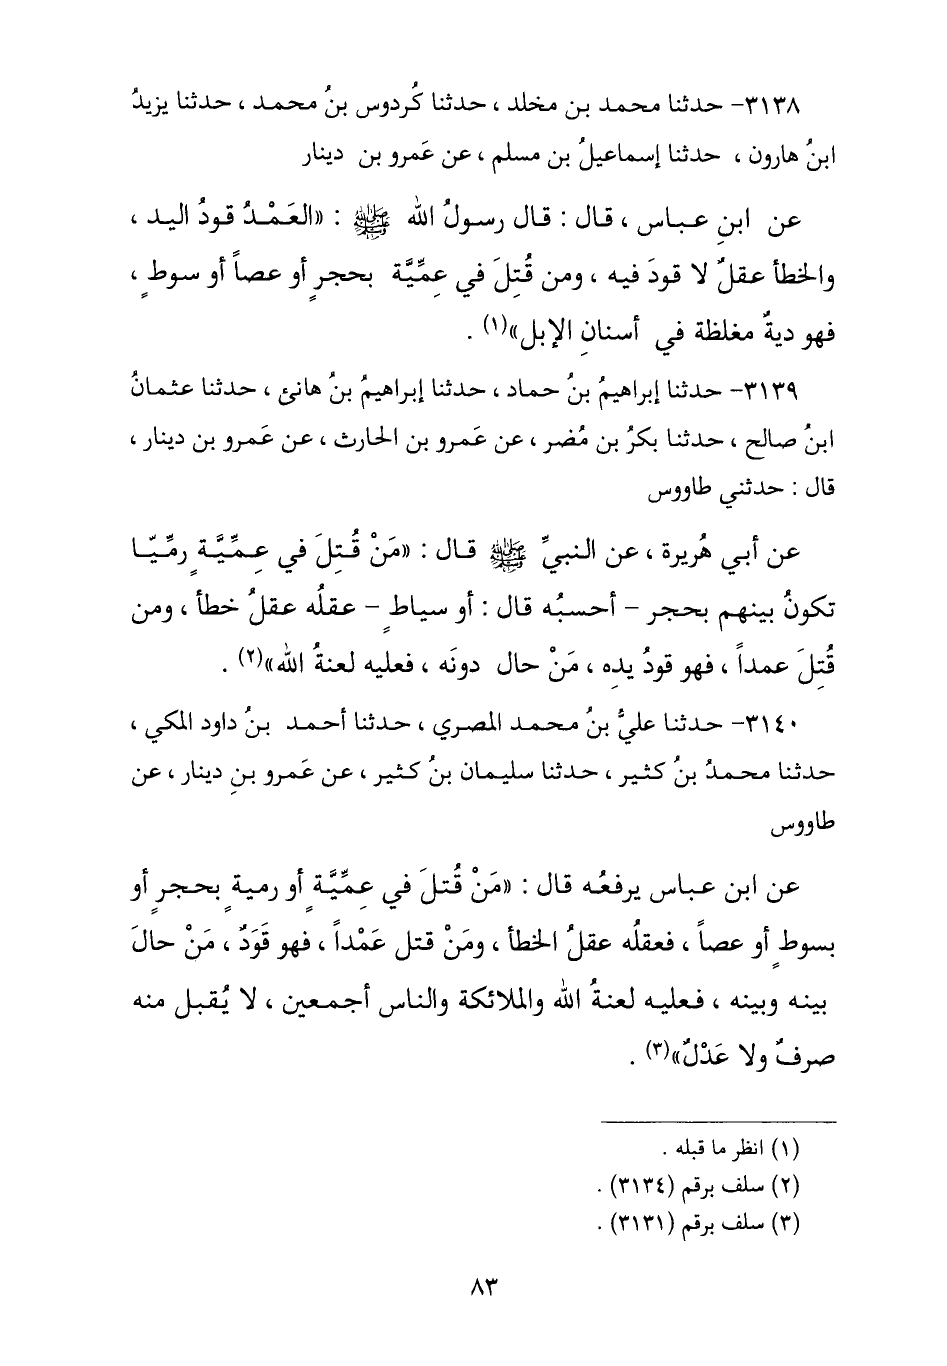 ٣١٣٨- حدثنا محمد بن مخلد ، حدثنا كُردوس بنُ محمد ، حدثنا يزيدُ
ابنُ هارون ، حدثنا إسماعيلُ بن مسلم ، عن عَمرو بن دينار
عن ابنِ عباس ، قال : قال رسولُ الله ﷺ : «العَمْدُ قودُ اليد ،
والخطأ عقلٌ لا قودَ فيه ، ومن قُتِلَ في عِمِّيَّة بحجرٍ أو عصاً أو سوطٍ ،
فهو ديةٌ مغلظة في أسنانِ الإبل»(١) .
٣١٣٩- حدثنا إبراهيمُ بنُ حماد ، حدثنا إبراهيمُ بنُ هانئ ، حدثنا عثمانُ
ابنُ صالح ، حدثنا بكرُ بن مُضر ، عن عَمرو بن الحارث ، عن عَمرو بن دينار ،
قال : حدثني طاووس
عن أبي هُريرة ، عن النبيِّ ﷺ قال : «مَنْ قُتِلَ في عِمِّيَّةٍ رمِّيّا
تكونُ بينهم بحجر - أحسبُه قال : أو سياطٍ - عقلُه عقلُ خطأ ، ومن
قُتِلَ عمداً ، فهو قودُ يدِه ، مَنْ حال دونَه ، فعليه لعنةُ الله»(٢) .
٣١٤٠- حدثنا عليُّ بنُ محمد المصري ، حدثنا أحمد بنُ داود المكي ،
حدثنا محمدُ بنُ كثير ، حدثنا سليمان بنُ كثير ، عن عَمرو بنِ دينار ، عن
طاووس
عن ابن عباس يرفعُه قال : «مَنْ قُتلَ في عِمِّيَّةٍ أو رميةٍ بحجرٍ أو
بسوطٍ أو عصاً ، فعقلُه عقلُ الخطأ ، ومَنْ قتل عَمْداً ، فهو قَوَدٌ ، مَنْ حالَ
بينه وبينه ، فعليه لعنةُ الله والملائكة والناس أجمعين ، لا يُقبل منه
صرفٌ ولا عَدْلٌ»(٣) .
(١) انظر ما قبله .
(٢) سلف برقم (٣١٣٤) .
(٣) سلف برقم (٣١٣١) .
٨٣